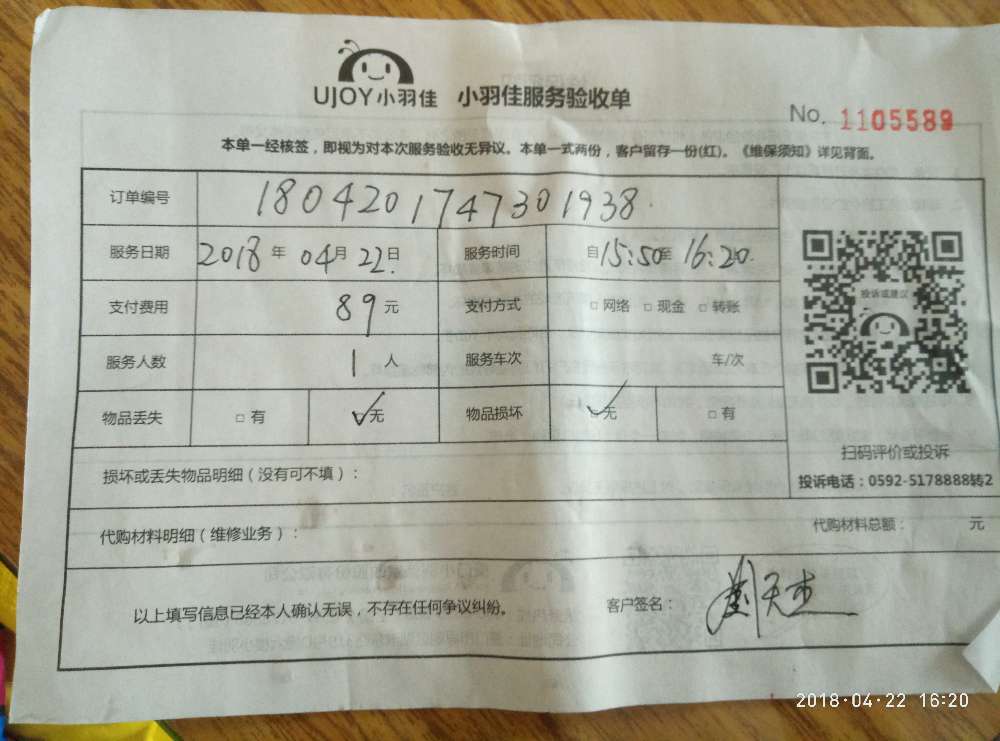 UJOY小羽佳 小羽佳服务验收单
No. 1105589
本单一经核签，即视为对本次服务验收无异议。本单一式两份，客户留存一份(红)。《维保须知》详见背面。
订单编号 1804201747301938
服务日期 2018年04月22日 服务时间 自15:50至16:20
支付费用 89元 支付方式 □网络 □现金 □转账
投诉或建议
服务人数 1人 服务车次 车/次
物品丢失 □有 ☑无 物品损坏 ☑无 □有
扫码评价或投诉
损坏或丢失物品明细（没有可不填）：
投诉电话：0592-5178888转2
代购材料明细（维修业务）： 代购材料总额： 元
以上填写信息已经本人确认无误，不存在任何争议纠纷。 客户签名：
2018·04·22 16:20